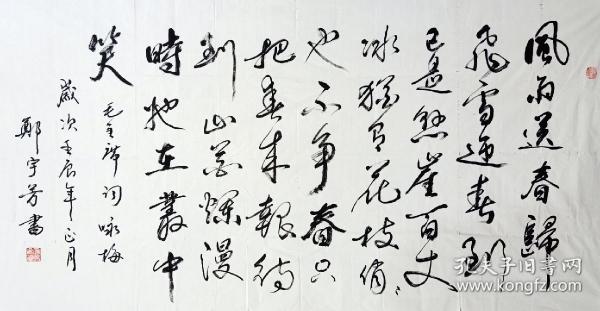 風雨送春歸
飛雪迎春到
已是懸崖百丈
冰猶有花枝俏俏
也不争春只
把春來報待
到山花爛漫
時她在叢中
笑
毛主席词咏梅
歲次壬辰年正月
鄭宇芳書
孔夫子旧書网
www.kongfz.com